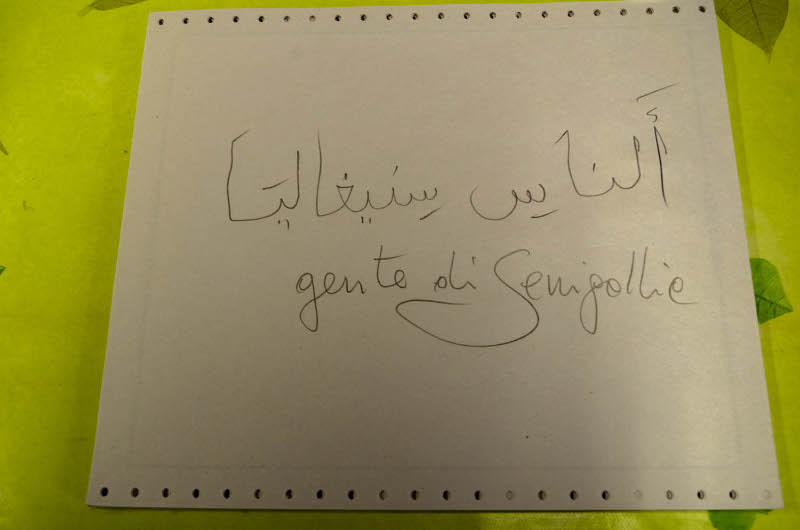 أَلناسِ سِنيغاليتا
gente di Senigallia